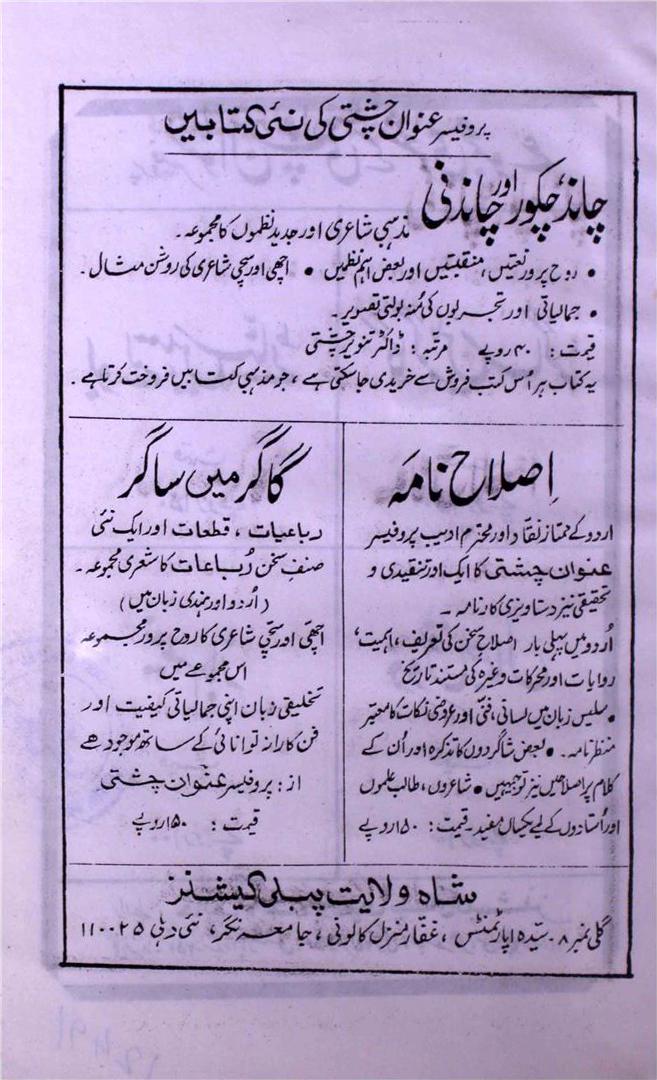 پروفیسر عنوان چشتی کی نئی کتابیں
چاند، چکور اور چاندنی
مذہبی شاعری اور جدید نظموں کا مجموعہ۔
• روح پرور نعتیں، منقبتیں اور بعض اہم نظمیں • اچھی اور سچی شاعری کی روشن مثال۔
• جمالیاتی اور تجربوں کی منہ بولتی تصویر۔
قیمت: ۴۰ روپے مرتبہ: ڈاکٹر تنویر چشتی
یہ کتاب ہر اُس کتب فروش سے خریدی جا سکتی ہے، جو مذہبی کتابیں فروخت کرتا ہے۔
اِصلاح نامہ
اردو کے ممتاز نقاد اور محترم ادیب پروفیسر
عنوان چشتی کا ایک اور تنقیدی و
تحقیقی نیز دستاویزی کارنامہ۔
اُردو میں پہلی بار اصلاحِ سخن کی تعریف، اہمیت،
روایات اور محرکات وغیرہ کی مستند تاریخ
• سلیس زبان میں لسانی، فنّی اور عروضی نکات کا معتبر
منظر نامہ۔ • بعض شاگردوں کا تذکرہ اور اُن کے
کلام پر اصلاحیں نیز توجیہیں • شاعروں، طالب علموں
اور اُستادوں کے لیے یکساں مفید۔ قیمت: ۱۵۰ روپے
گاگر میں ساگر
رباعیات، قطعات اور ایک نئی
صنفِ سخن رُباعات کا شعری مجموعہ۔
(اُردو اور ہندی زبان میں)
اچھی اور سچّی شاعری کا روح پرور مجموعہ
اس مجموعے میں
تخلیقی زبان اپنی جمالیاتی کیفیت اور
فن کارانہ توانائی کے ساتھ موجود ھے
از: پروفیسر عنوان چشتی
قیمت: ۱۵۰ روپے
شاہ ولایت پبلی کیشنز
گلی نمبر ۸۔ سیّدہ اپارٹمنٹس، غفّار منزل کالونی، جامعہ نگر، نئی دہلی ۱۱۰۰۲۵